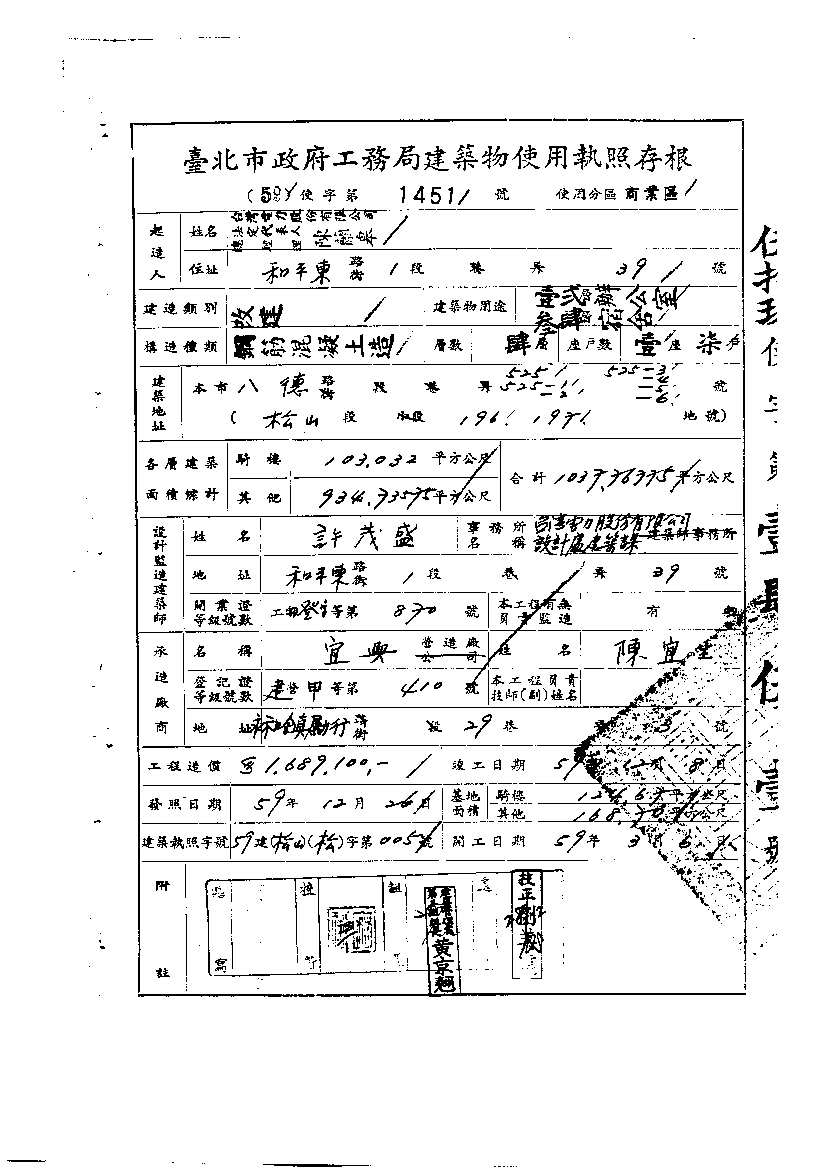 臺北市政府工務局建築物使用執照存根
(59)使字第 1451 號 使用分區 商業區
起造人 姓名 台灣電力股份有限公司
住址 和平東 路街 1 段 巷 弄 39 號
建造類別 改建 建築物用途 壹貳層辦公室
叁肆 宿舍
構造種類 鋼筋混凝土造 層數 肆層 座戶數 壹座 柒戶
建築地址 本市 八德 路街 段 巷 弄 525 525-3 號
525-1 -4
-2 -5
-6
( 松山 段 小段 196. 197. 地號)
各層建築面積總計 騎樓 103.032 平方公尺 合計 1037.76775 平方公尺
其他 934.73575 平方公尺
設計監造建築師 姓名 許茂盛 事務所名稱 台灣電力股份有限公司
建築師事務所
地址 和平東 路街 1 段 巷 弄 39 號
開業證等級號數 等第 870 號 本工程有無負責監造 有
承造廠商 名稱 宜興 營造廠公司 姓名 陳宜
登記證等級號數 建營甲等第 410 號 本工程負責技師(副)姓名
地址 路街 段 29 巷 弄 3 號
工程造價 1,689,100,- 竣工日期 59年 12月 8日
發照日期 59年 12月 26日 基地面積 騎樓 平方公尺
其他 168.70 平方公尺
建築執照字號 59建(松山)(松)字第005號 開工日期 59年 3月 6日
附註
技正
黃京翹